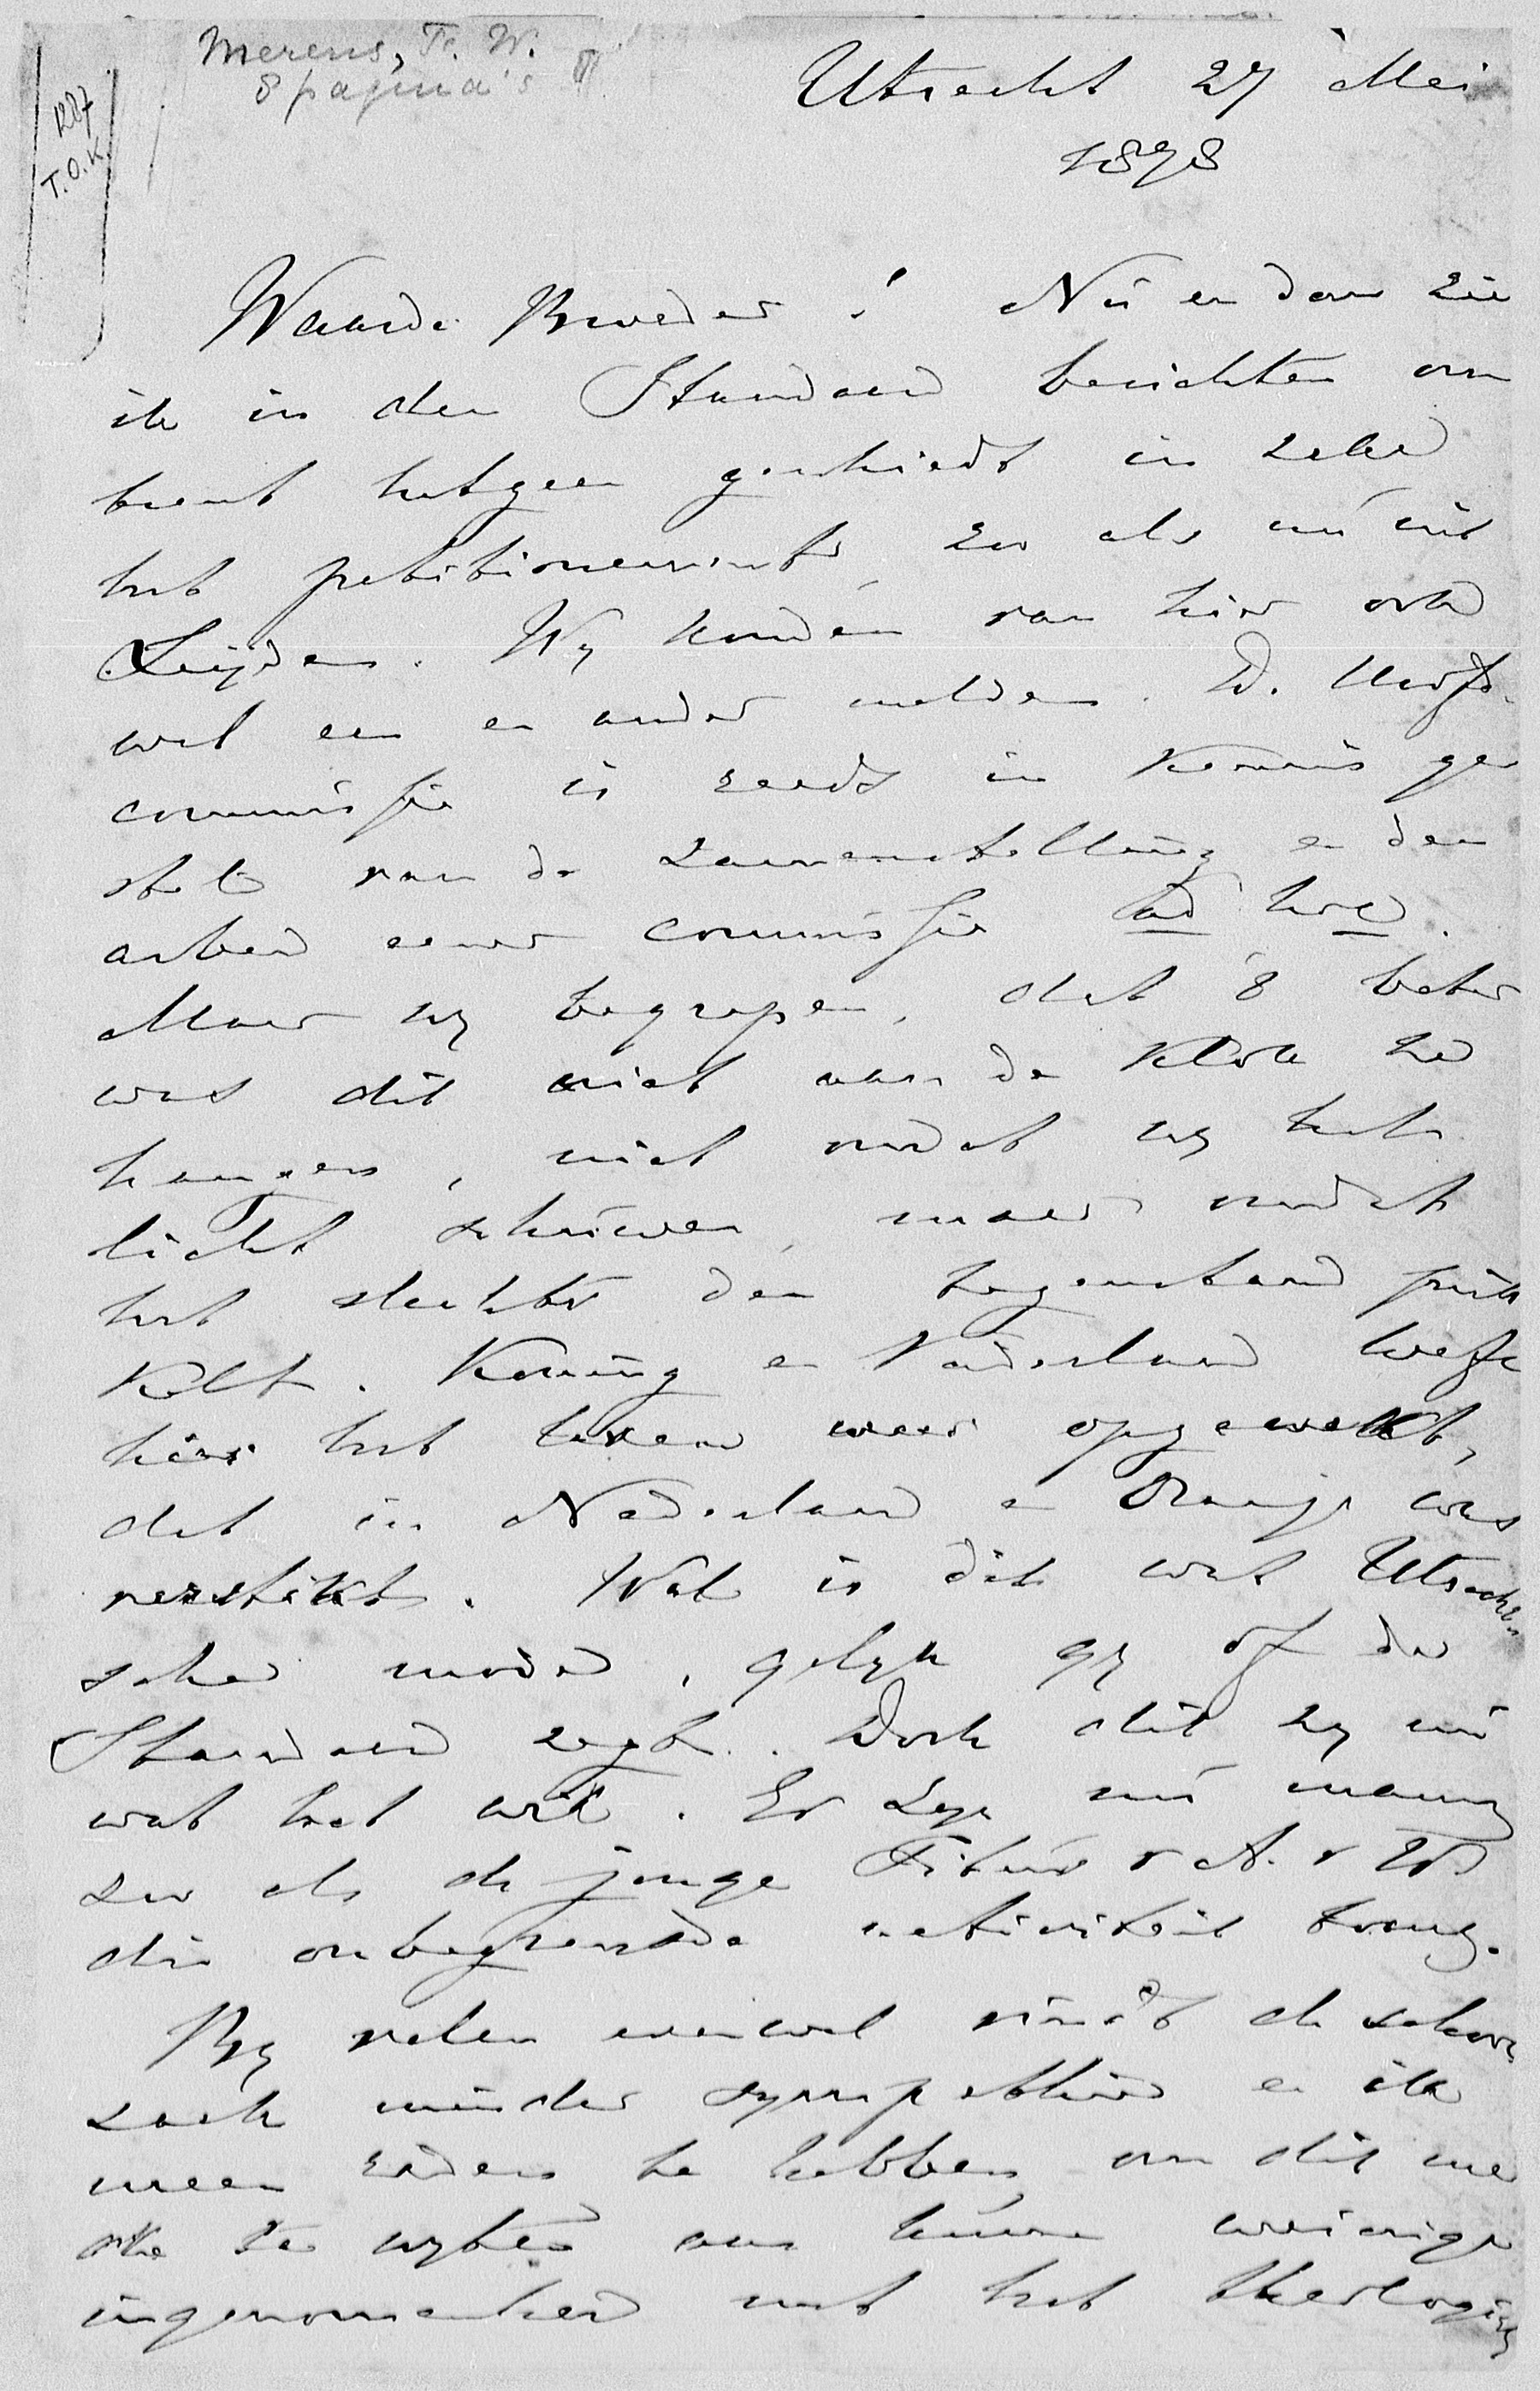 Merens, F. W.
8 pagina's
1287
T.O.K.
Utrecht 27 Mei
1878
Waarde Broeder! Nu en dan zie
ik in den Standaard berichten om
trent hetgeen geschiedt in zake
het petitionement, zoo als nu uit
Leijden. Wy konden van hier ook
wel een en ander melden. D. Hoofd-
commissie is reeds in kennis ge
steld van de zamenstelling en den
arbeid eener commissie ad hoc.
Maar wy begrepen, dat 't beter
was dit niet aan de klok te
hangen, niet omdat wy het
licht schuwen, maar omdat
het slechts den tegenstand prik
kelt. Koning en Vaderland heeft
hier het leven weer opgewekt,
dat in Nederland en Oranje was
verstikt. Wel is dit wat Utrecht
sche mode, gelyk gy of de
Standaard zegt. Doch dit zy nu
wat het wil. Er zyn nu mannen
zoo als de jonge v A. v W.
die onbegrensde activiteit
By velen evenwel vindt de school
zaak minder sympathie en ik
meen reden te hebben, om dit me
de te wyten aan hunne weinige
ingenomenheid met het theologisch